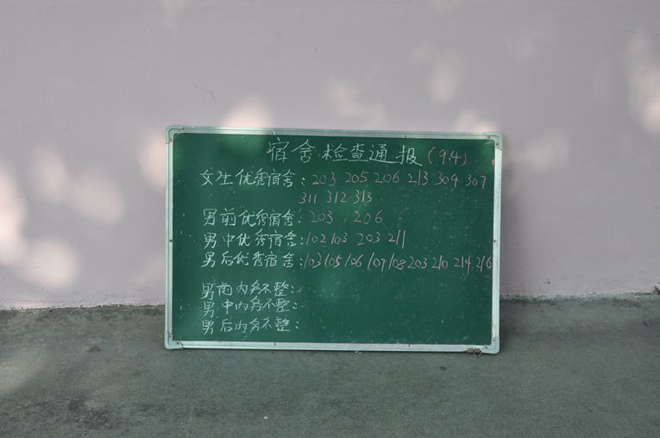 宿舍检查通报(9.4)
女生优秀宿舍:203 205 206 213 304 307
311 312 313
男前优秀宿舍:203 206
男中优秀宿舍:102 103 203 211
男后优秀宿舍:103 105 106 107 108 203 210 214 216
男前内务不整:
男中内务不整:
男后内务不整: